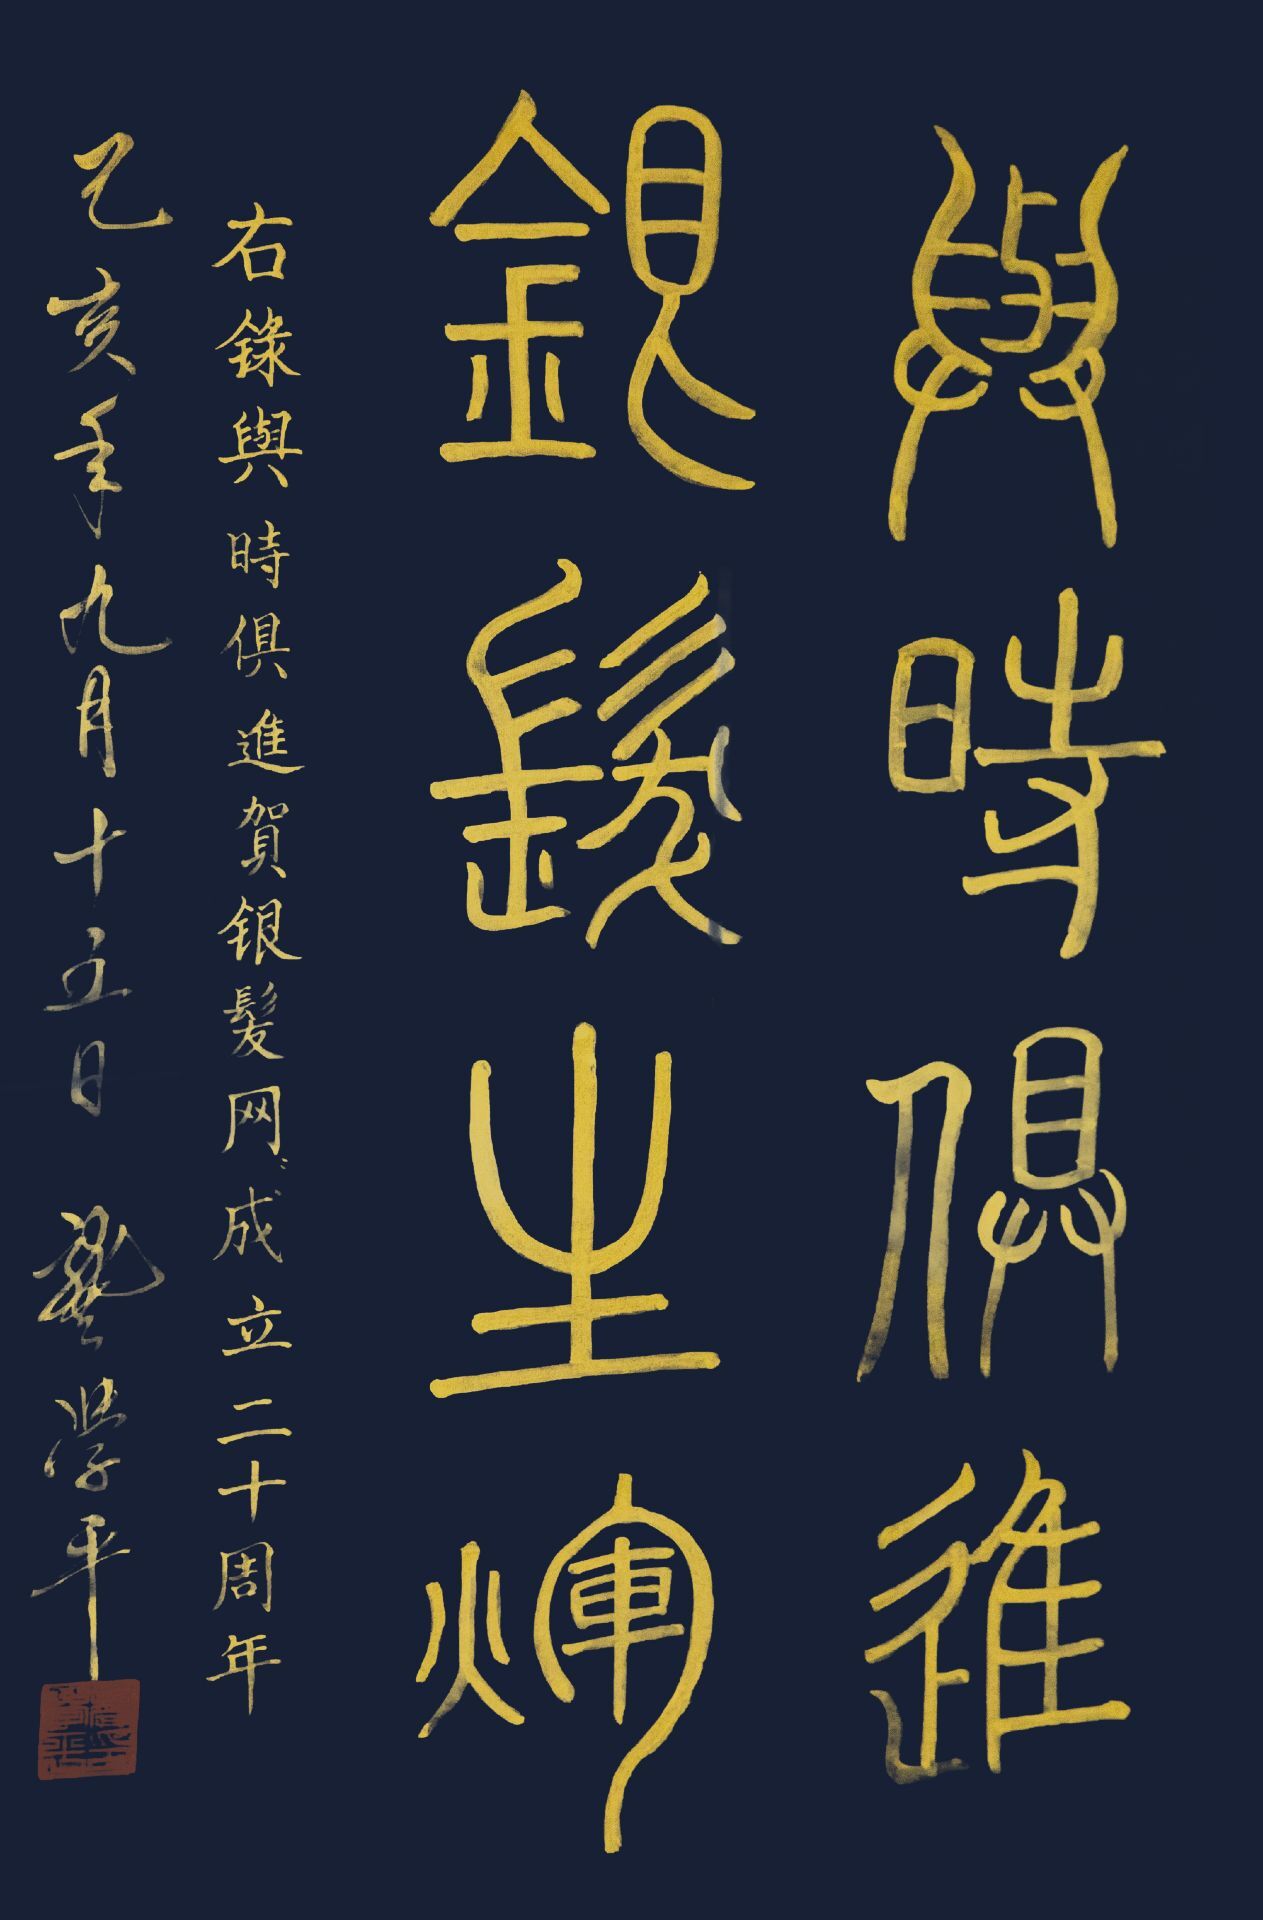 與時俱進
銀髮生煇
右錄與時俱進賀银髮网成立二十周年
乙亥年九月十五日 龔学平